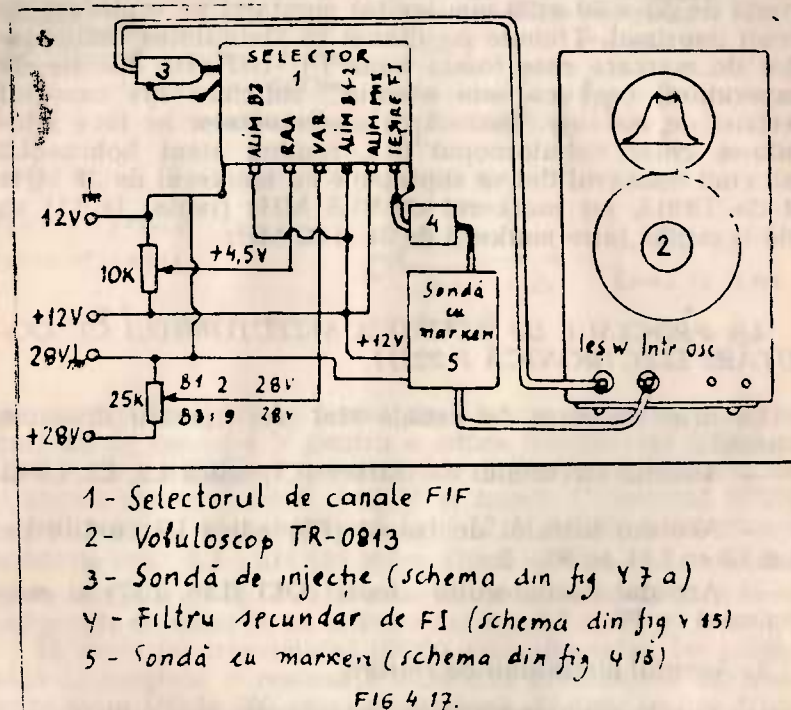 3
SELECTOR
1
ALIM B3
RAA
VAR
ALIM B1-2
ALIM MIX
IEȘIRE FI
12V
10K
+4,5V
+12V
28V
25K
B1 2 28V
B3 : 9 28V
+28V
+12V
4
Sondă
cu
marker
5
2
Ieș w Intr osc
1 - Selectorul de canale FIF
2 - Voluloscop TR-0813
3 - Sondă de injecție (schema din fig 4 7 a)
4 - Filtru secundar de FI (schema din fig 4 15)
5 - Sondă cu marker (schema din fig 4 15)
FIG 4 17.